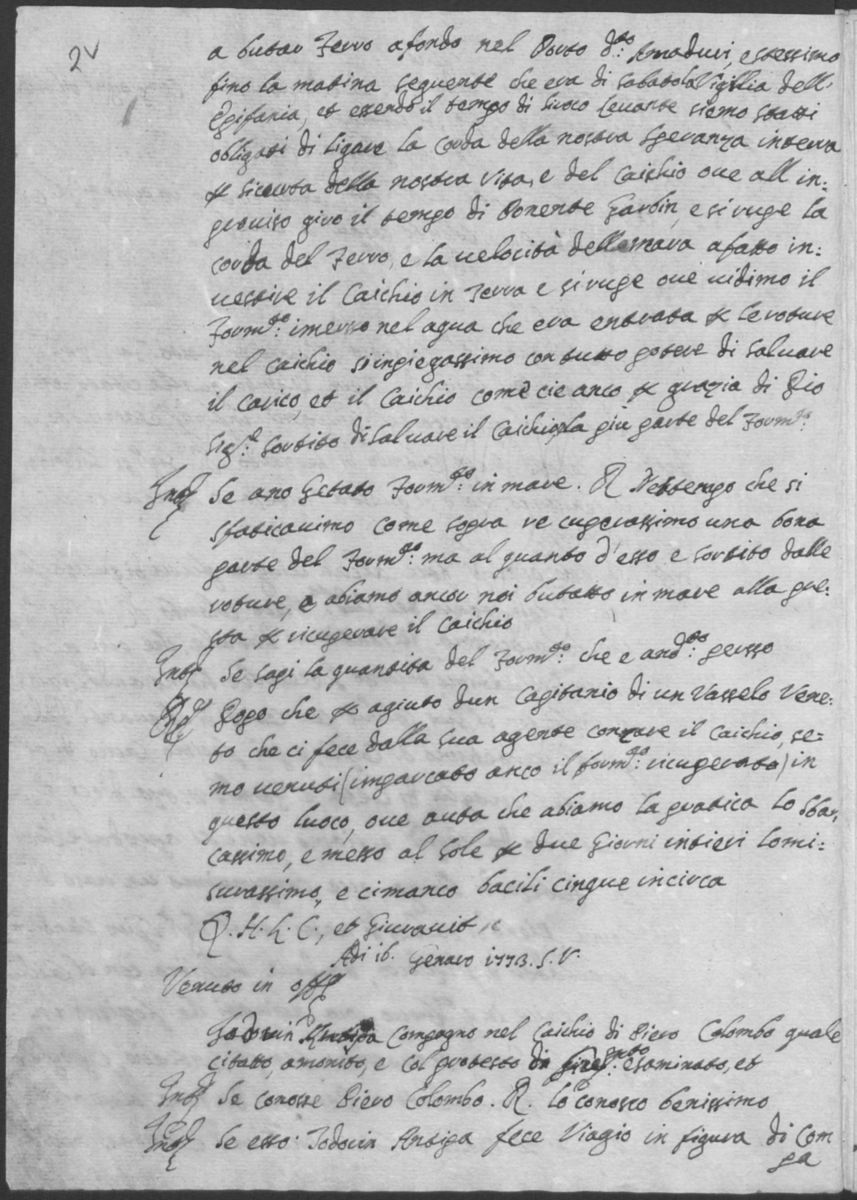 2v
a butar Ferro afondo nel Porto d:to Amaduri, e stessimo
fino la matina seguente che era di Sabato la Vigilia dell'
Epifania, et essendo il tempo di Siroco Levante siamo statti
obligati di ligare la corda della nostra speranza in terra
p sicurta della nostra vita, e del Caichio ove all in:
proviso giro il tempo di Ponente Garbin, e si rupe la
corda del Ferro, e la velocità dell mara afatto in:
vestire il Caichio in Terra e si rupe ove vidimo il
Form:to imerso nel aqua che era entrata p le roture
nel caichio s'inpiegassimo con tutto potere di salvare
il carico, et il Caichio come cie anco p grazia di Dio
Sig:e sortito di salvare il Caichio, la più parte del Form:to
Int Se ano Getato Form:to in mare. R Nel tempo che si
sfaticavimo come sopra re cuperassimo una bona
parte del Form:to ma al quanto d'esso e sortito dalle
roture, e abiamo ancor noi butatto in mare alla pre:
sta p ricuperare il Caichio
Int Se sapi la quantita del Form:to che e and:to persso
R Dopo che p agiuto dun Capitanio di un Vasselo Vene:
to che ci fece dalla sua agente conzare il Caichio, se:
mo venuti (imparcato anco il form:to ricuperato) in
questo luoco, ove auta che abiamo la pratica lo sbar,
cassimo, e messo al sole p due Giorni intieri lo mi:
surassimo, e ci manco bacili cinque incirca
Q. H. L. C., et Giuravit
Adi 16. Genaro 1773. S. V.
Venuto in off
Todorin Antipa Compagno nel Caichio di Piero Colombo quale
citato, amonito, e col protesto di esaminato, et
Int Se conosse Piero Colombo. R. Lo conosco benissimo
Int Se esso Todorin Antipa fece Viagio in figura di Com
pa